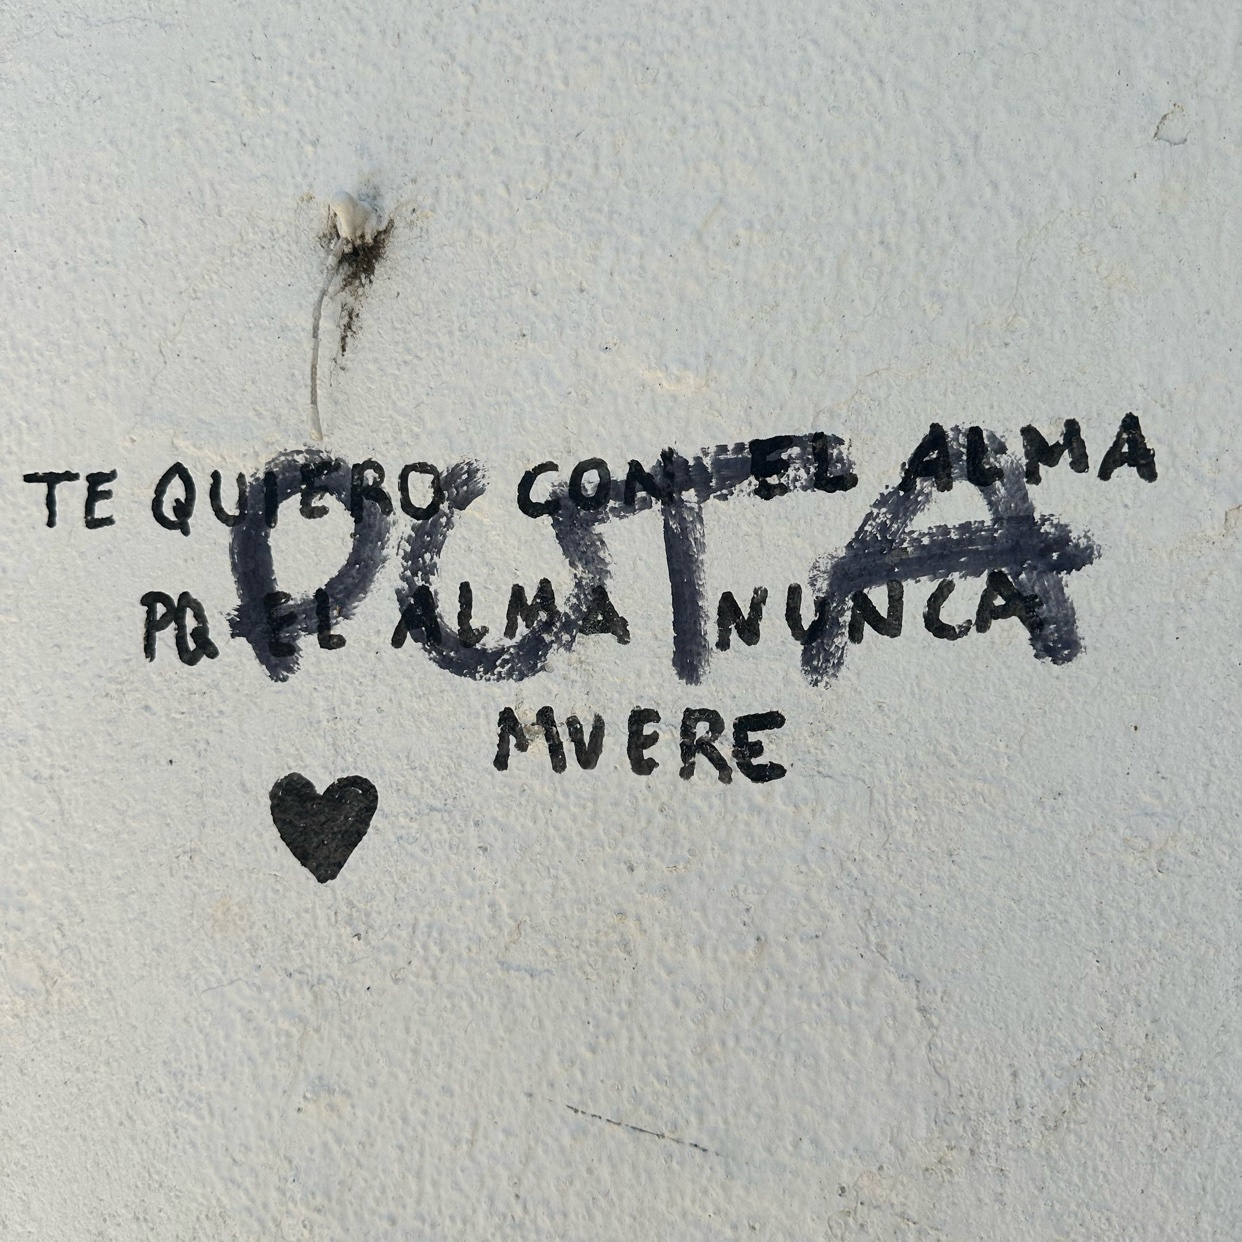 TE QUIERO CON EL ALMA
PQ EL ALMA NUNCA
MUERE
PUTA